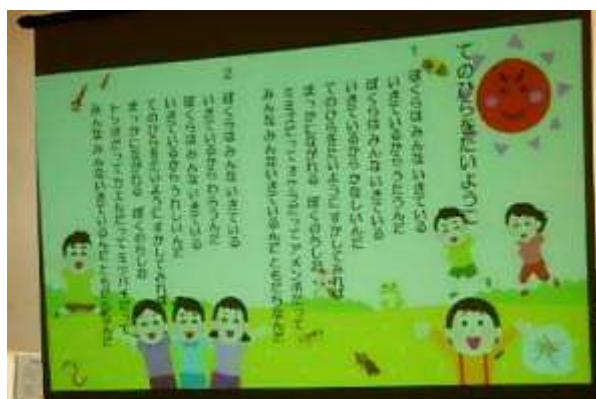 てのひらをたいように
1
ぼくらは みんな いきている
いきているから うたうんだ
ぼくらは みんな いきている
いきているから かなしいんだ
てのひらをたいように すかしてみれば
まっかにながれる ぼくのちしお
ミミズだって オケラだって アメンボだって
みんな みんな いきているんだ ともだちなんだ
2
ぼくらは みんな いきている
いきているから わらうんだ
ぼくらは みんな いきている
いきているから うれしいんだ
てのひらをたいように すかしてみれば
まっかにながれる ぼくのちしお
トンボだって カエルだって ミツバチだって
みんな みんな いきているんだ ともだちなんだ